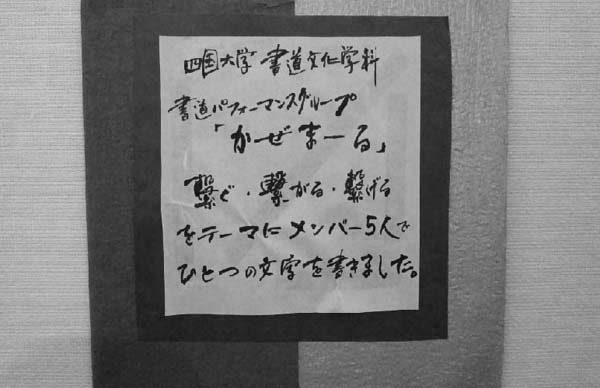 四国大学 書道文化学科
書道パフォーマンスグループ
「かぜまーる」
繋ぐ・繋がる・繋げる
をテーマにメンバー5人で
ひとつの文字を書きました。